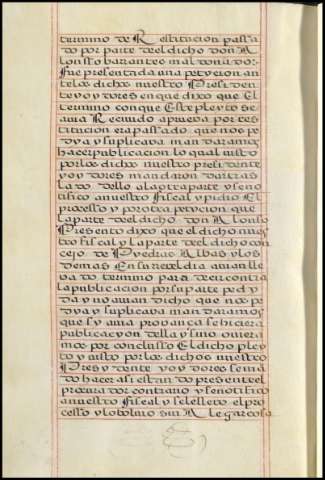 termino de Restitucion passa
do por parte del dicho don A
lonsso barrantes maldonado
fue presentada una petycion an
te los dichos nuestro Presiden
te y oydores en que dixo que El
termino con que Este pleyto se
avia Recevido a prueva por res
titucion era passado que nos pe
dya y suplicava mandaramos
hacer publicacion lo qual visto
por los dichos nuestro presidente
y oydores mandaron dar tras
lado dello a la otra parte y se no
tifico a nuestro fiscal y pidio El
processo y por otra petycion que
la parte del dicho don Alonso
Presento dixo que el dicho nues
tro fiscal y la parte del dicho con
cejo de Pyedras Albas y los
demas En su reveldia avian lle
vado termino para decir contra
la publicacion por su parte pedy
da y no avian dicho que nos pe
dya y suplicava mandaramos
que sy avia provanca se hiciera
publicacyon della y sino oviera
mos por conclusso El dicho pley
to y visto por los dichos nuestro
Presydente y oydores lo man
do hacer assi estando presente el
procurador contrario y se notifico
a nuestro fiscal y se le llevo el pro
cesso y lo bolvio sin Alegar cosa